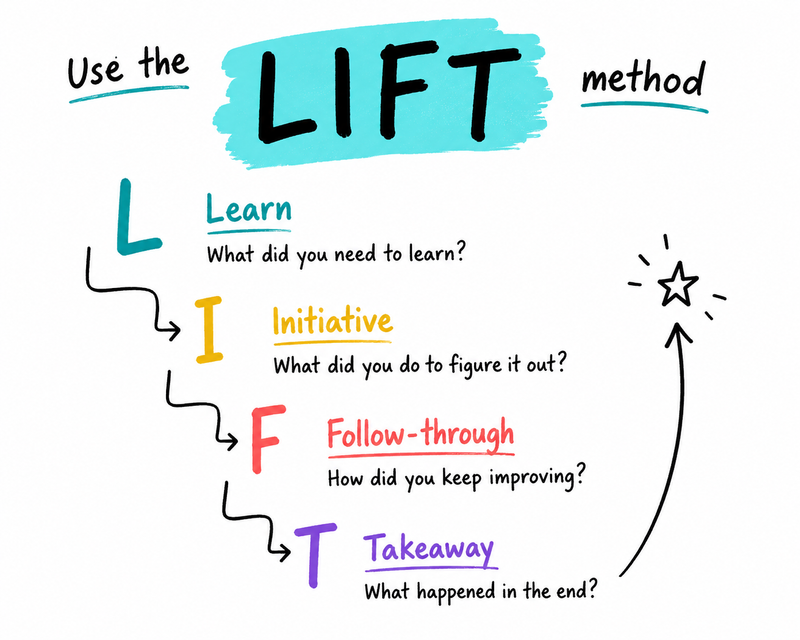 Use the LIFT method
L Learn
What did you need to learn?
I Initiative
What did you do to figure it out?
F Follow-through
How did you keep improving?
T Takeaway
What happened in the end?